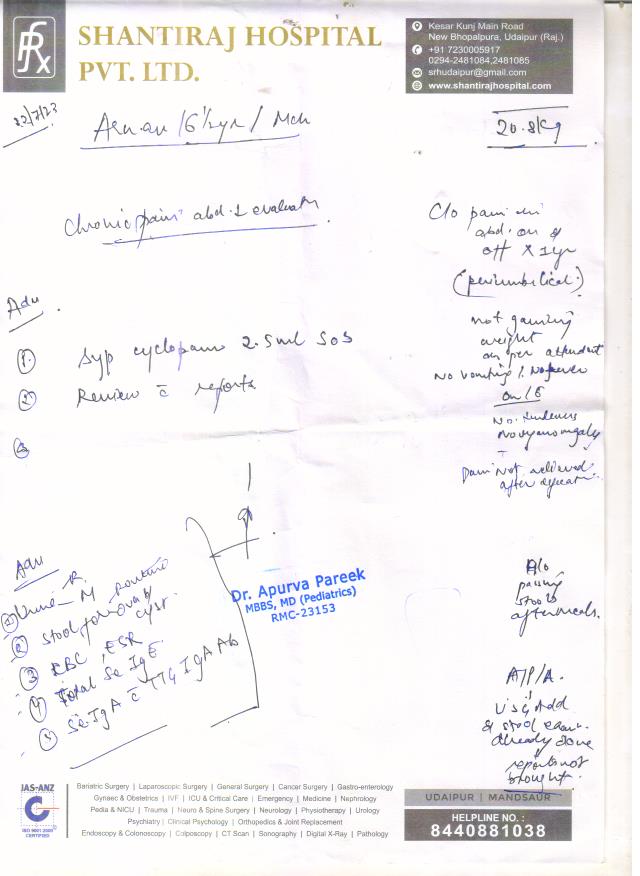 SHANTIRAJ HOSPITAL
PVT. LTD.
Kesar Kunj Main Road
New Bhopalpura, Udaipur (Raj.)
+91 7230005917
0294-2481084,2481085
srhudaipur@gmail.com
www.shantirajhospital.com
22/7/23
/6½yr/Mch
20.8kg
Chronic pain abd. evaluation
C/o pain in
abd. on &
off x 1yr
(periumbilical)
not gaining
weight
as per attendant
No vomiting / No fever
O/E
No tenderness
No organomegaly
Pain Not relieved
after
Adv.
1. Syp cyclopam 2.5ml SOS
2. Review c̄ reports
3
H/o
passing
stools
after meals.
A/P/A.
USG Abd
& stool exam.
already done
reports not
brought.
Adv
1 Urine R M routine
2 Stool for ova &
cyst.
3 CBC, ESR
4 Total Se IgE
5 Se. IgA c̄ TTG IgA Ab
Dr. Apurva Pareek
MBBS, MD (Pediatrics)
RMC-23153
JAS-ANZ
C
ISO 9001:2000
CERTIFIED
Bariatric Surgery | Laparoscopic Surgery | General Surgery | Cancer Surgery | Gastro-enterology
Gynaec & Obstetrics | IVF | ICU & Critical Care | Emergency | Medicine | Nephrology
Pedia & NICU | Trauma | Neuro & Spine Surgery | Neurology | Physiotherapy | Urology
Psychiatry | Clinical Psychology | Orthopedics & Joint Replacement
Endoscopy & Colonoscopy | Colposcopy | CT Scan | Sonography | Digital X-Ray | Pathology
UDAIPUR | MANDSAUR
HELPLINE NO. :
8440881038